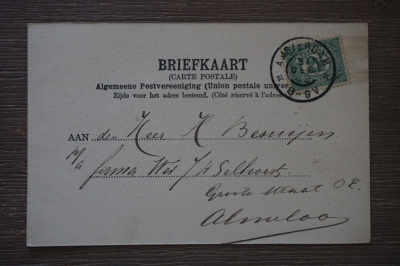 BRIEFKAART
(CARTE POSTALE)
Algemeene Postvereeniging (Union postale univer
Zijde voor het adres bestemd. (Côté réservé à l'adres
AMSTERDAM
AAN den Heer H
p/a firma Wed J H
Groote straat
Almeloo